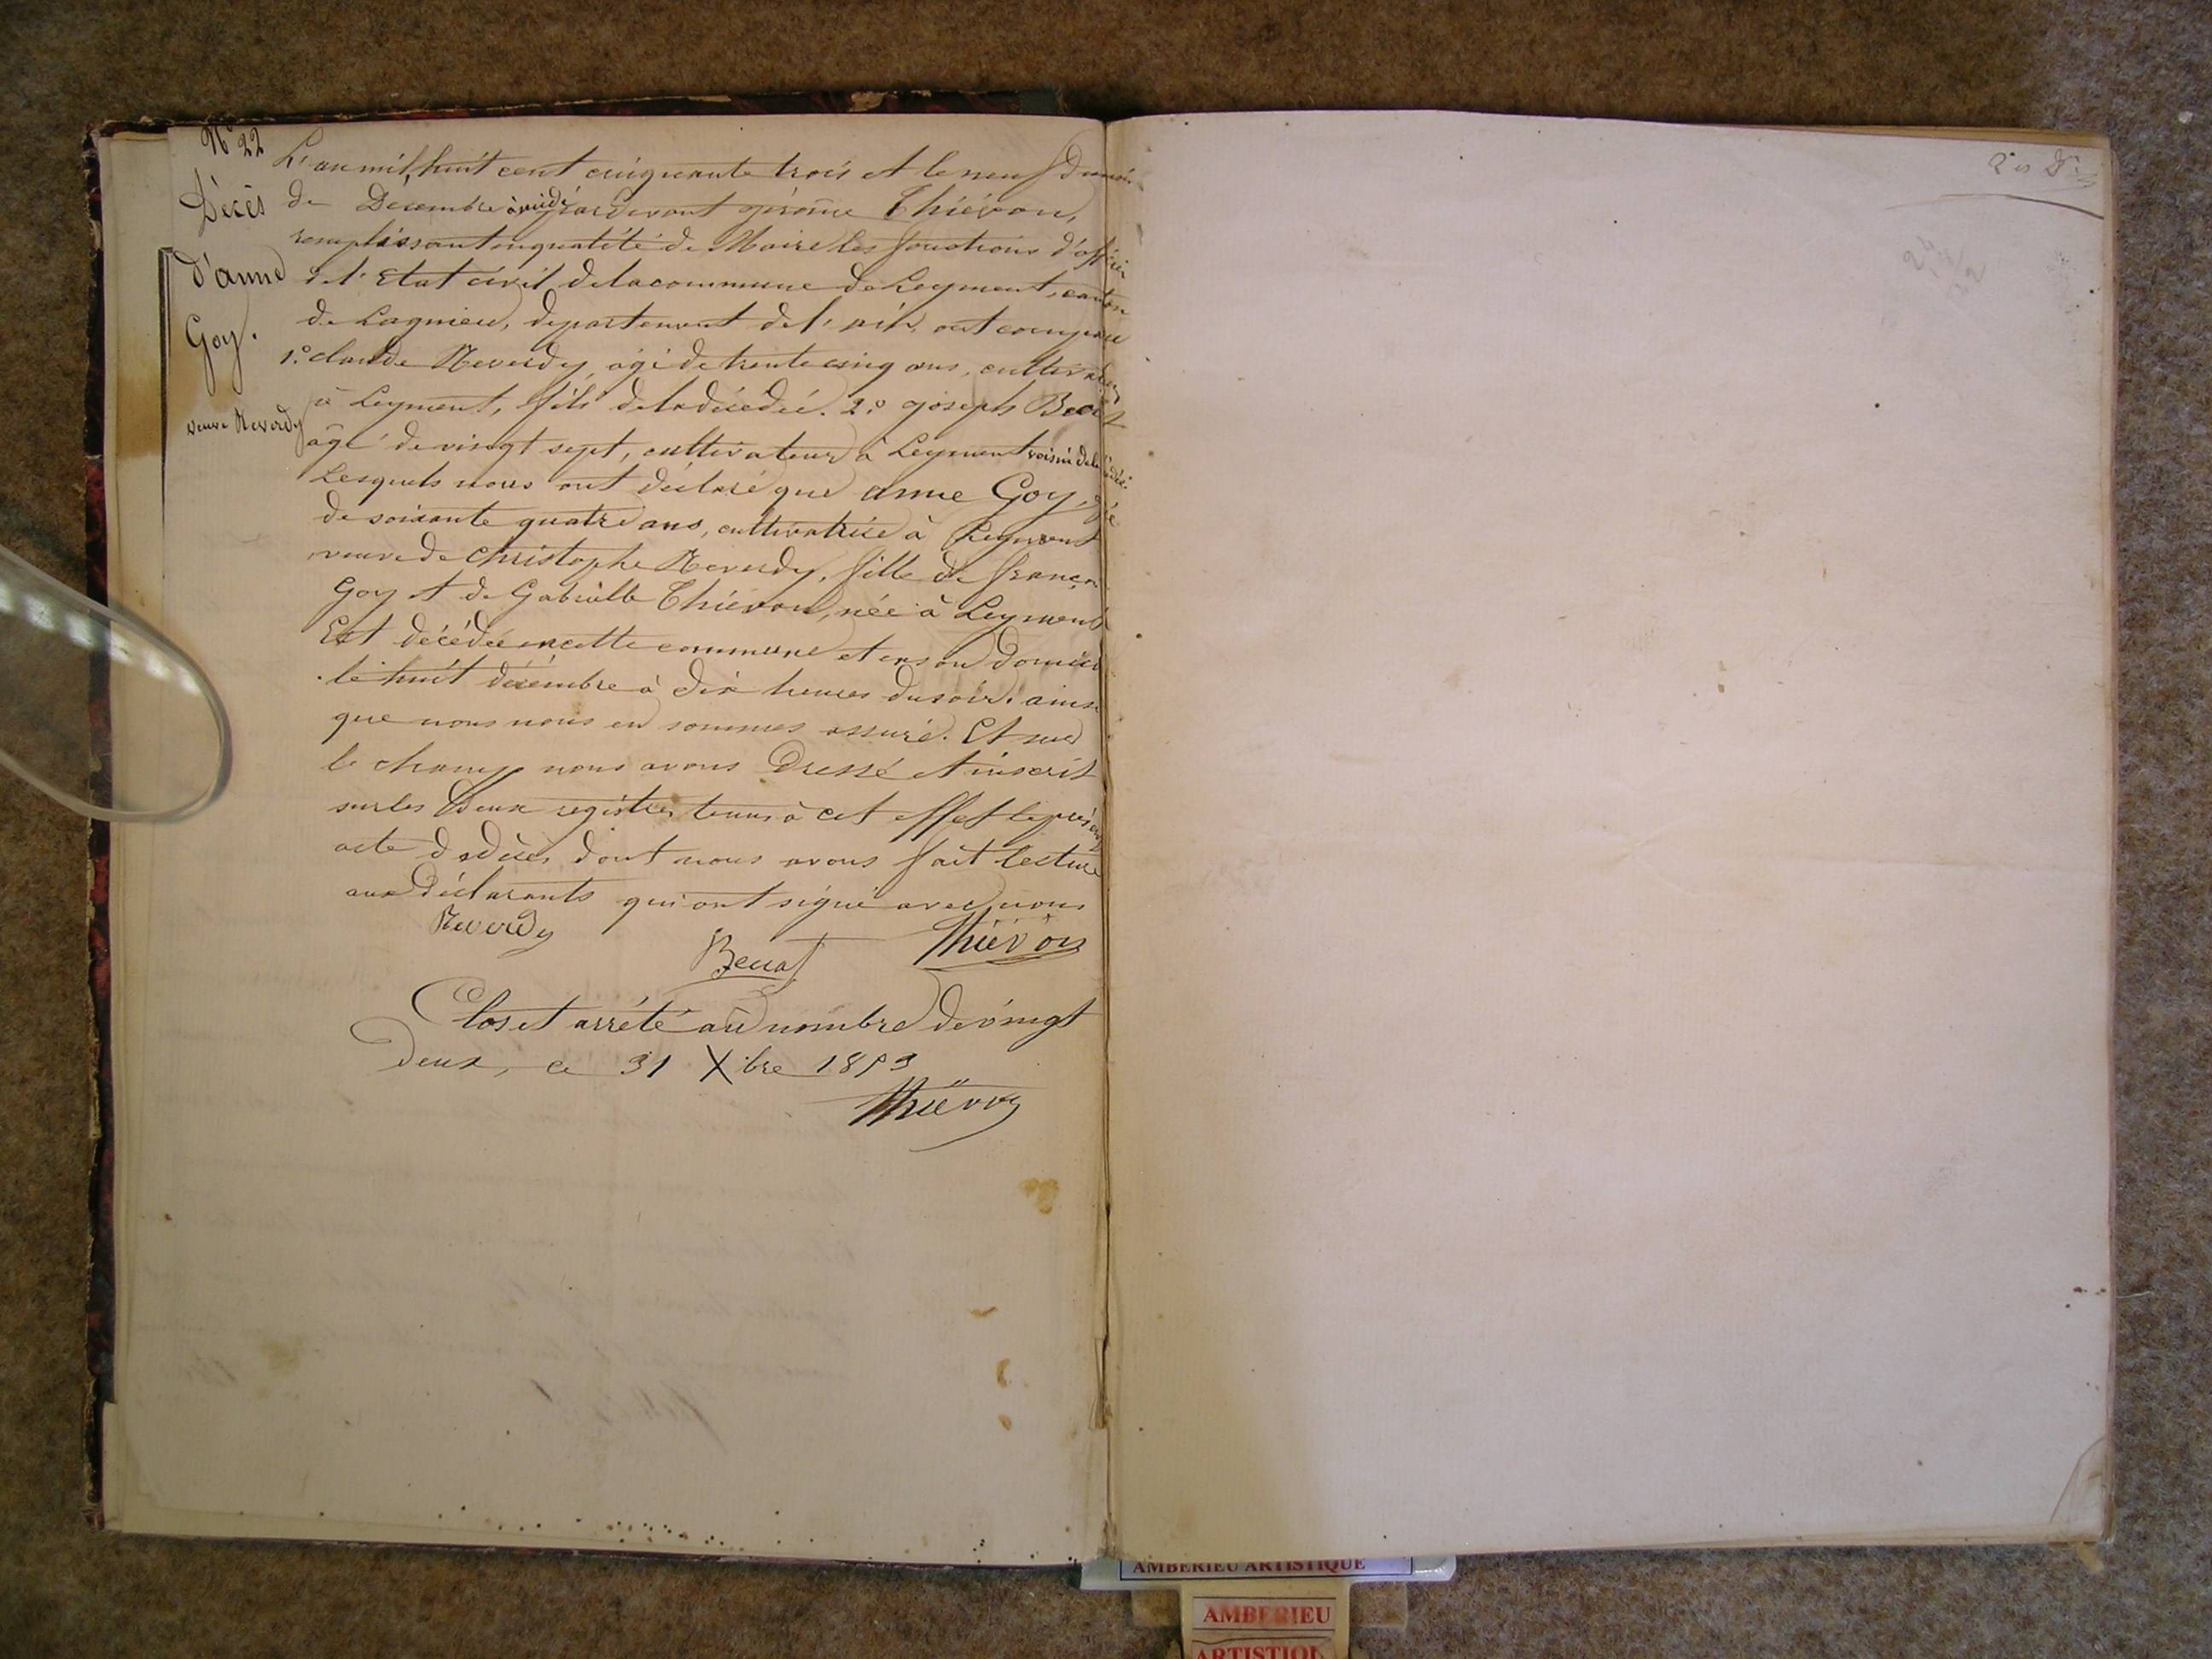 N° 22
Décès
d'anne
Goy.
veuve Reverdy
L'an mil huit cent cinquante trois et le neuf du mois
de Décembre à midi pardevant Thiévon,
remplissant en qualité de Maire les fonctions d'officier
de l'Etat civil de la commune de Leyment, canton
de Lagnieu, departement de l'ain, ont comparu
1° claude Reverdy, âgé de trente cinq ans, cultivateur
à Leyment, fils de la décédée. 2° joseph
âgé de vingt sept, cultivateur à Leyment voisin de la
Lesquels nous ont déclaré que anne Goy, agée
de soixante quatre ans, cultivatrice à Leyment
veuve de christophe Reverdy, fille de françois
Goy et de Gabrielle Thiévon, née à Leyment
Est décédée en cette commune et en son domicile
le huit décembre à dix heures du soir. ainsi
que nous nous en sommes assuré. Et sur
le champ nous avons Dressé et inscrit
sur les Deux registres tenus à cet effet le présent
acte de décès, dont nous avons fait lecture
aux Déclarants qui ont signé avec nous
Reverdy
Thiévon
Clos et arrêté au nombre de vingt
Deux, ce 31 Xbre 1853
Thiévon
AMBERIEU ARTISTIQUE
AMBERIEU